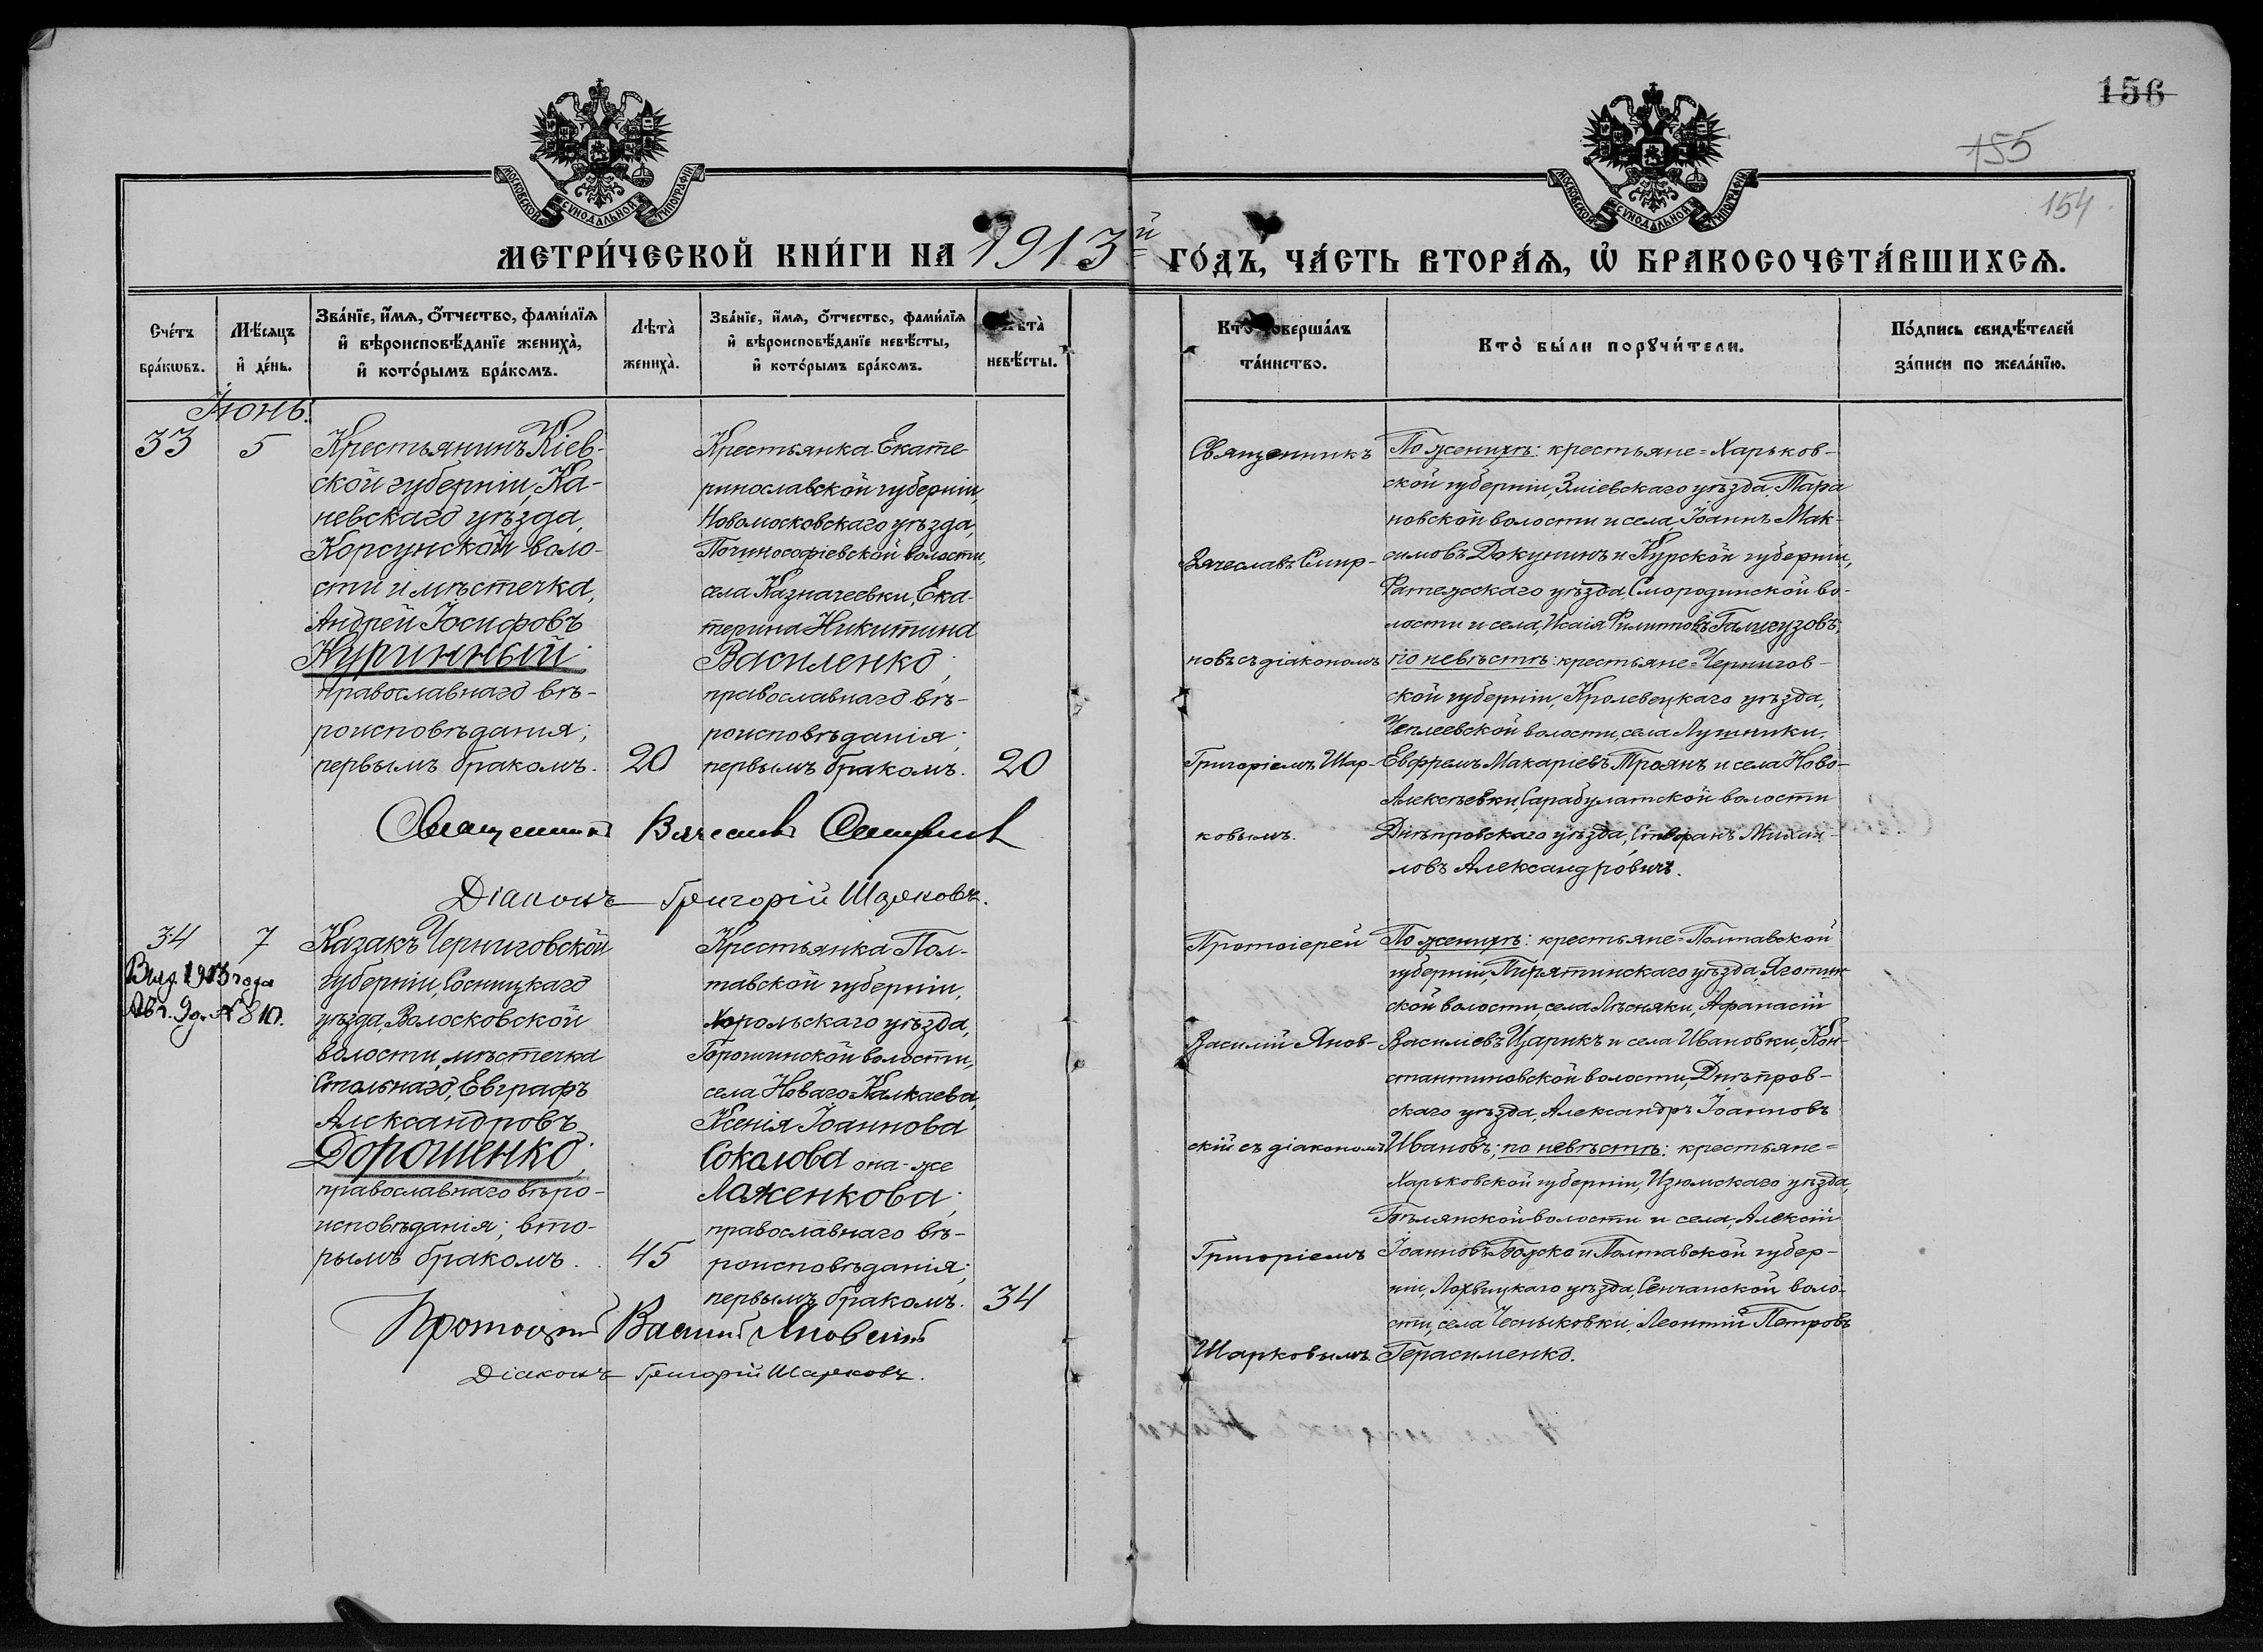 156
155
154
МОСКОВСКОЙ СУНОДАЛЬНОЙ ТИПОГРАФІИ
МОСКОВСКОЙ СУНОДАЛЬНОЙ ТИПОГРАФІИ
МЕТРИ́ЧЕСКОЙ КНИ́ГИ НА 1913й ГО́ДЪ, ЧА́СТЬ ВТОРА́Ѧ, Ѡ҆ БРАКОСОЧЕТА́ВШИХСѦ.
Сче́тъ бра́кѡвъ.
Мѣ́сѧцъ и҆ де́нь.
Зва́нїе, и҆́мѧ, ѻ҆́тчество, фами́лїѧ
и҆ вѣроисповѣ́данїе жениха̀,
и҆ кото́рымъ бра́комъ.
Лѣта̀ жениха̀.
Зва́нїе, и҆́мѧ, ѻ҆́тчество, фами́лїѧ
и҆ вѣроисповѣ́данїе невѣ́сты,
и҆ кото́рымъ бра́комъ.
Лѣта̀ невѣ́сты.
Кто̀ соверша́лъ та́инство.
Кто̀ бы́ли порꙋчи́тели.
По́дпись свидѣ́телей за́писи по жела́нїю.
Іюнь.
33
5
Крестьянинъ Кіев-
ской губерніи, Ка-
невскаго уѣзда,
Корсунской воло-
сти и мѣстечка,
Андрей Іосифовъ
Куринный;
православнаго вѣ-
роисповѣданія;
первымъ бракомъ.
20
Крестьянка Екате-
ринославской губерніи,
Новомосковскаго уѣзда,
Почино-софіевской волости,
села Казначеевки, Ека-
терина Никитина
Василенко,
православнаго вѣ-
роисповѣданія;
первымъ бракомъ.
20
Священникъ
Вячеславъ Смир-
новъ съ діакономъ
Григоріемъ Шар-
ковымъ.
По женихѣ: крестьяне = Харьков-
ской губерніи, Зміевскаго уѣзда, Тара
новской волости и села, Іоаннъ Мак-
симовъ Докунинъ и Курской губерніи,
Фатежскаго уѣзда, Смородинской во-
лости и села, Исаія Филипповъ Галигузовъ;
по невѣстѣ: крестьяне = Чернигов-
ской губерніи, Кролевецкаго уѣзда,
Чеплеевской волости, села Лушники,
Евфремъ Макаріевъ Троянъ и села Ново-
Алексѣевки, Сарабулатской волости
Днѣпровскаго уѣзда, Стефанъ Михаи-
ловъ Александровичъ.
Священникъ Вячеславъ Смирновъ
Діаконъ Григорій Шарковъ.
34
7
Выд. 1913 года
Авг. 30. № 810.
Казакъ Черниговской
губерніи, Сосницкаго
уѣзда, Волосковской
волости, мѣстечка
Стольнаго, Евграфъ
Александровъ
Дорошенко;
православнаго вѣро-
исповѣданія; вто-
рымъ бракомъ.
45
Крестьянка Пол-
тавской губерніи,
Хорольскаго уѣзда,
Горошинской волости,
села Новаго Калкаева,
Ксенія Іоаннова
Соколова она-же
Лаженкова;
православнаго вѣ-
роисповѣданія;
первымъ бракомъ.
34
Протоіерей
Василій Янов-
скій съ діакономъ
Григоріемъ
Шарковымъ.
По женихѣ: крестьяне = Полтавской
губерніи, Пирятинскаго уѣзда, Яготин
ской волости, села Лѣсняки, Афанасій
Василіевъ Царикъ и села Ивановки, Кон-
стантиновской волости, Днѣпров-
скаго уѣзда, Александръ Іоанновъ
Ивановъ; по невѣстѣ: крестьяне =
Харьковской губерніи, Изюмскаго уѣзда,
Бѣлянской волости и села, Алексій
Іоанновъ Божко и Полтавской губер-
ніи, Лохвицкаго уѣзда, Сенчанской воло-
сти, села Чесныковки, Леонтій Петровъ
Герасименко.
Протоіерей Василій Яновскій
Діаконъ Григорій Шарковъ.